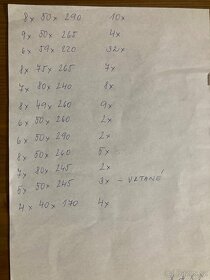 8x 50x 290 10x
9x 50x 265 4x
6x 59x 220 32x
8x 75x 265 7x
7x 80x 240 8x
8x 49x 260 9x
6x 50x 260 2x
6x 50x 290 2x
8x 50x 260 5x
7x 80x 245 2x
5x 50x 245 3x - VRTANÉ
4x 40x 170 4x